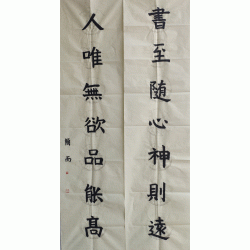 書至随心神則遠
人唯無欲品能高